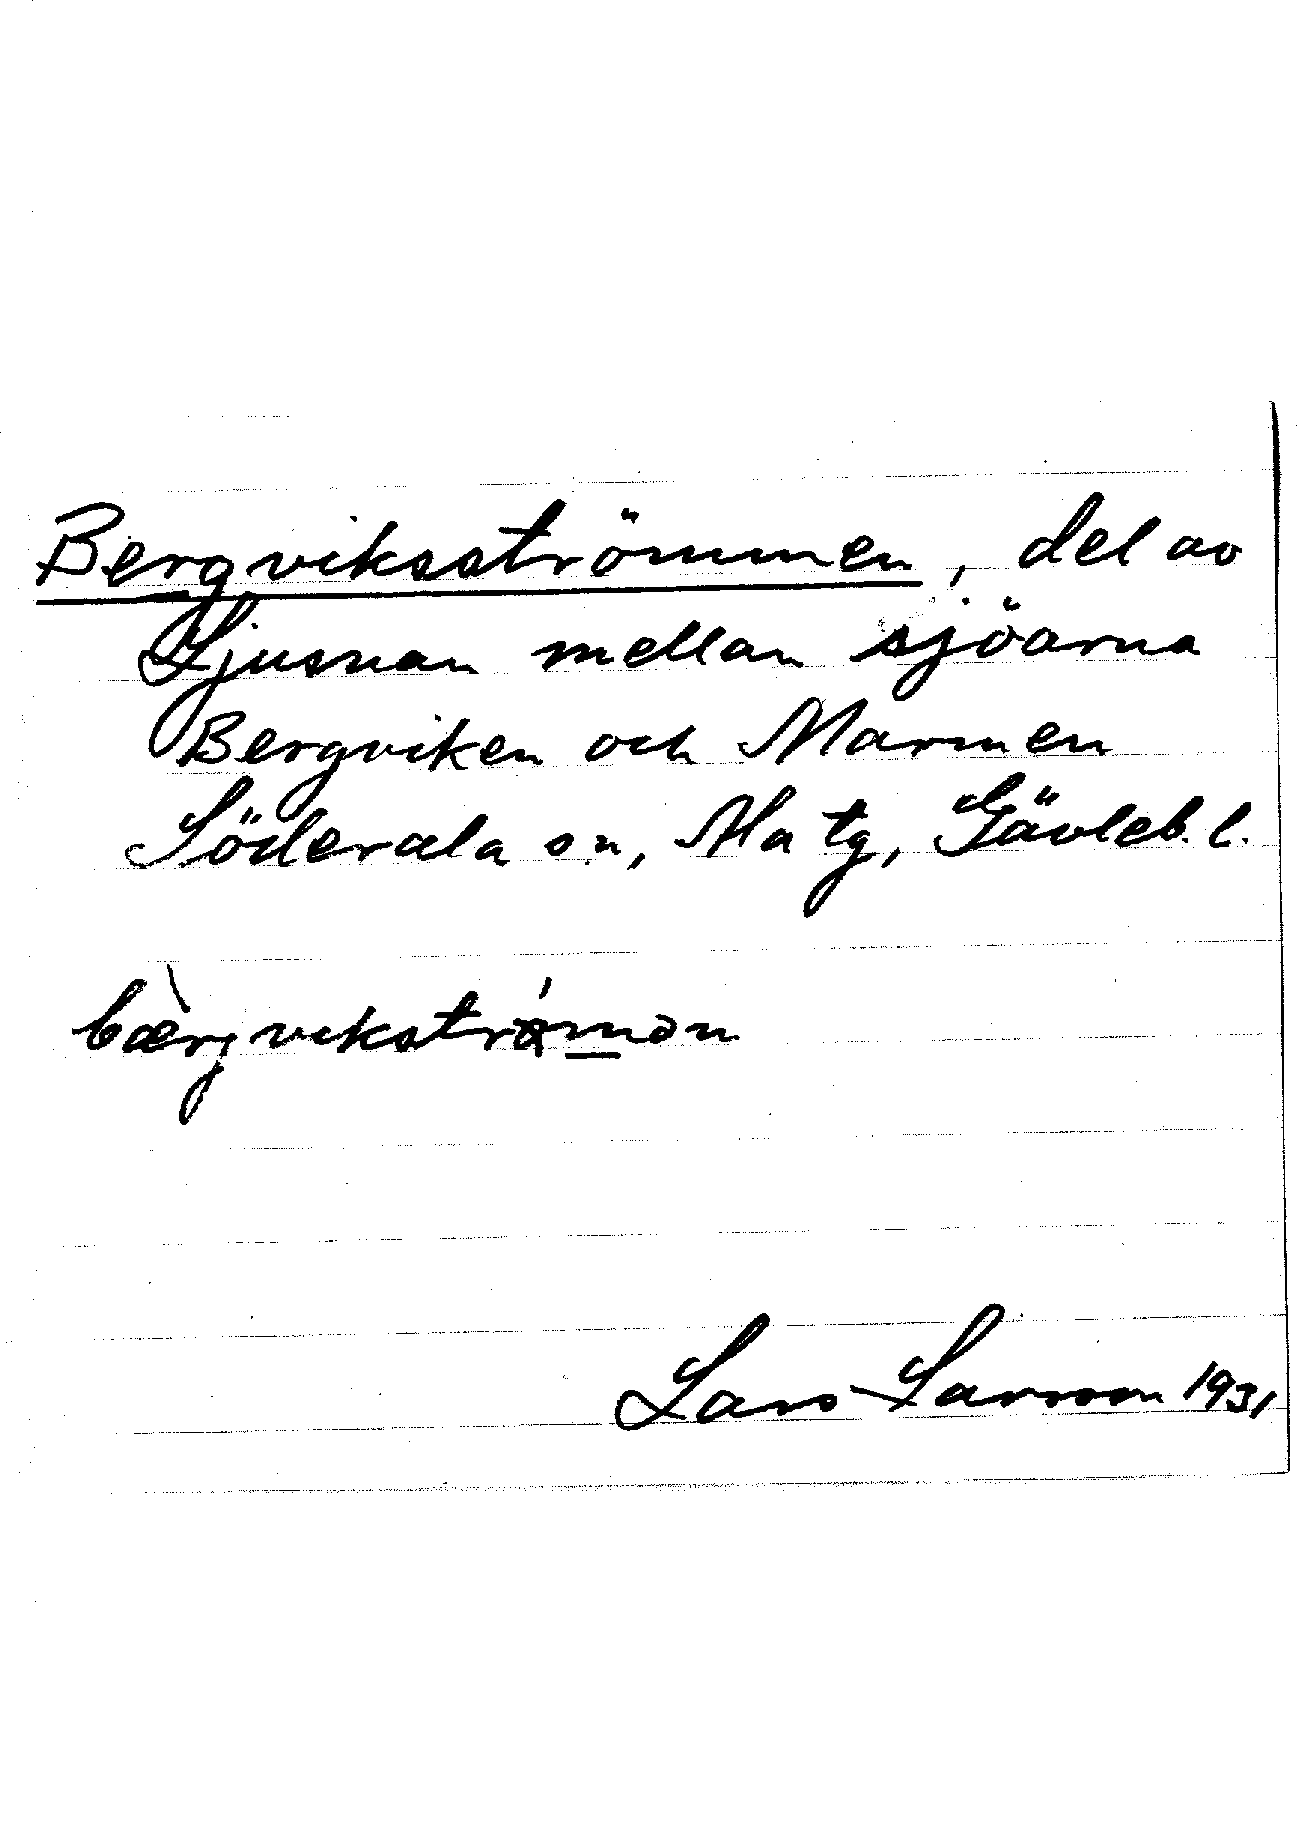 Bergviksströmmen, del av
Ljusnan mellan sjöarna
Bergviken och Marmen
Söderala sn, Ala tg, Gävleb. l.
bæ̀rgvikstrǿmən
Lars Larsson 1931